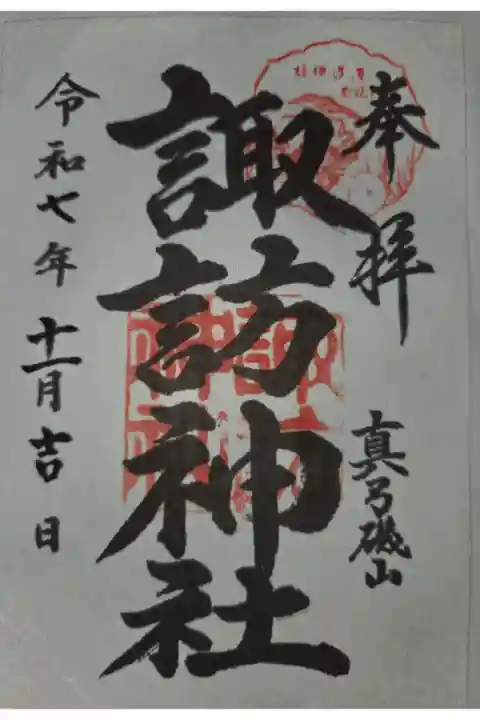 奉拝
真弓磯山
諏訪神社
令和七年十一月吉日